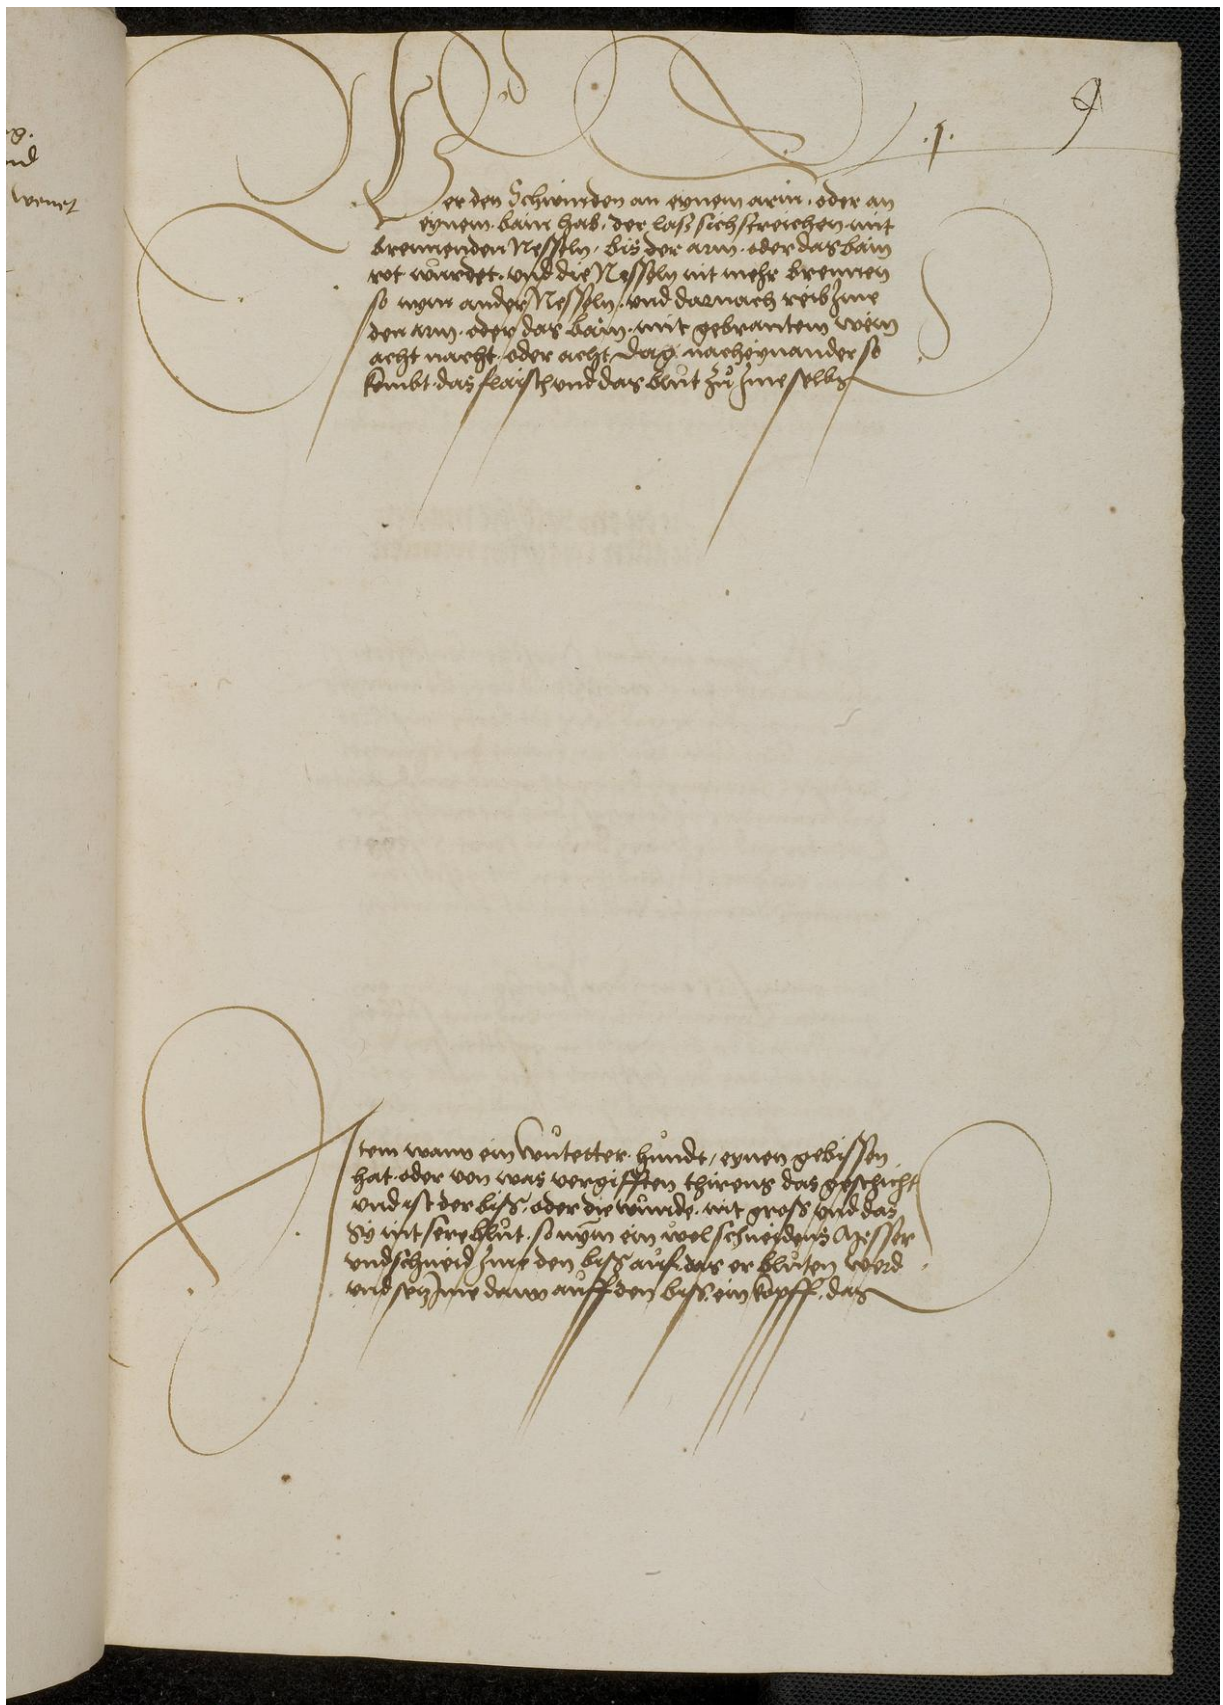 9
.1.
Wer den Schwinden an eynem arm, oder an
eynem bain hab, der lass sich streichen mit
brennenden Nesseln, bis der arm oder das bain
rot würdet, und die Nesseln nit mehr brennen
so nym ander Nesseln, und darnach reib Ime
den arm oder das bain mit gebrantem wein
acht nacht oder acht Dag nacheynander so
kombt das flaisch und das blůt zů Ime selbs
Item wann ein Wůtetter hůndt, eynen gebissen
hat oder von was vergifften thirens das geschicht
und ist der biss, oder die wůnde nit gross und das
Sy nit sere blůt, so nym ein wol schneidens Messer
und schneid Ime den biss auf das er blůten werd
und setz Ime dann auff den biss ein kopff, das
g.
nd
wenet